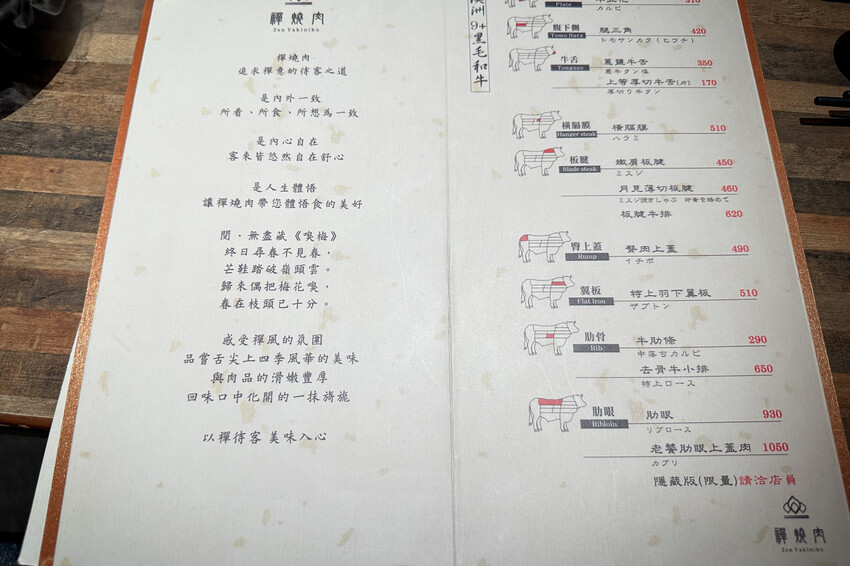 禪燒肉
Zen Yakiniku
禪燒肉
追求禪意的待客之道
是內外一致
所看、所食、所想為一致
是內心自在
客來皆悠然自在舒心
是人生體悟
讓禪燒肉帶您體悟食的美好
閱·無盡藏《嗅梅》
終日尋春不見春，
芒鞋踏破嶺頭雲。
歸來偶把梅花嗅，
春在枝頭已十分。
感受禪風的氛圍
品嘗舌尖上四季風華的美味
與肉品的滑嫩豐厚
回味口中化開的一抹旖旎
以禪待客 美味入心
洲9+黑毛和牛
Plate
カルビ
腹下側
Tomo Bara
腿三角 420
トモサンカク(ヒウチ)
牛舌
Tongues
蔥鹽牛舌 350
葱牛タン塩
上等厚切牛舌(片) 170
厚切り牛タン
橫膈膜
Hanger steak
橫膈膜 510
ハラミ
板腱
Blade steak
嫩肩板腱 450
ミスジ
月見薄切板腱 460
板腱牛排 620
臀上蓋
Rump
臀肉上蓋 490
イチボ
翼板
Flat Iron
特上羽下翼板 510
ザブトン
肋骨
Rib
牛肋條 290
中落ちカルビ
去骨牛小排 650
特上ロース
肋眼
Ribloin
肋眼 930
リブロース
老饕肋眼上蓋肉 1050
カブリ
隱藏版(限量)請洽店員
禪燒肉
Zen Yakiniku